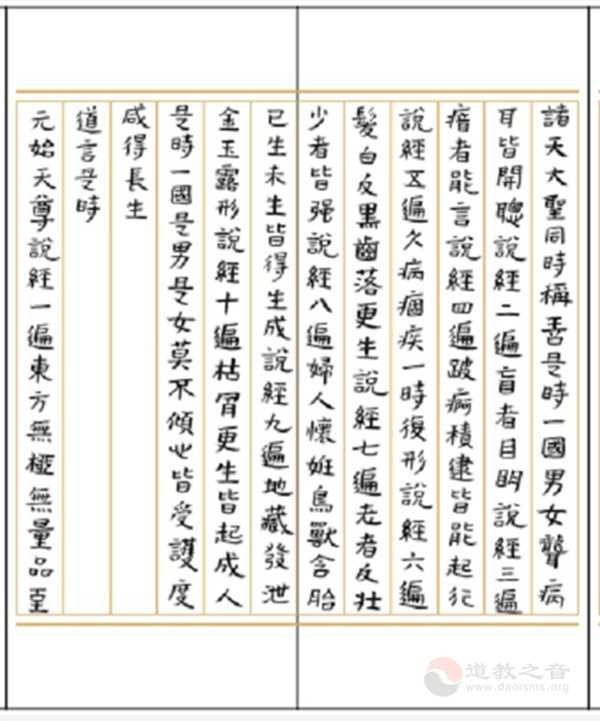 諸天大聖同時稱善是時一國男女聾病
耳皆開聰說經二遍盲者目明說經三遍
瘖者能言說經四遍跛痾積逮皆能起行
說經五遍久病痼疾一時復形說經六遍
髮白反黑齒落更生說經七遍老者反壯
少者皆强說經八遍婦人懷姙鳥獸含胎
已生未生皆得生成說經九遍地藏發泄
金玉露形說經十遍枯骨更生皆起成人
是時一國是男是女莫不傾心皆受護度
咸得長生
道言是時
元始天尊說經一遍東方無極無量品至
道教之音
www.daoisms.org